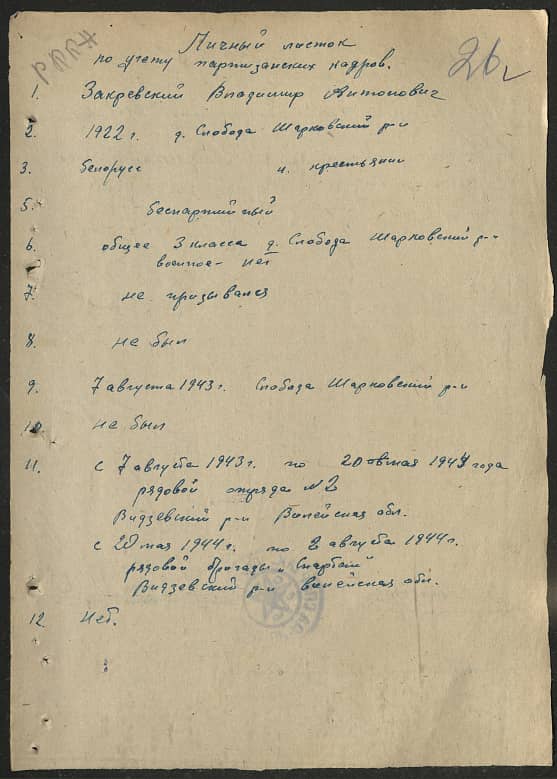 Личный листок
по учету партизанских кадров.
26
1. Закревский Владимир Антонович
2. 1922 г. д. Слобода Шарковский р-н
3. белорусс 4. крестьянин
5. беспартийный
6. общее 3 класса д. Слобода Шарковский р-н
военное - нет
7. не призывался
8. не был
9. 7 августа 1943 г. Слобода Шарковский р-н
10. не был
11. с 7 августа 1943 г. по 20 мая 1944 года
рядовой отряда №2
Видзевский р-н Вилейская обл.
с 20 мая 1944 г. по 2 августа 1944 г.
рядовой бригады "Спартак"
Видзевский р-н вилейская обл.
12. Нет.